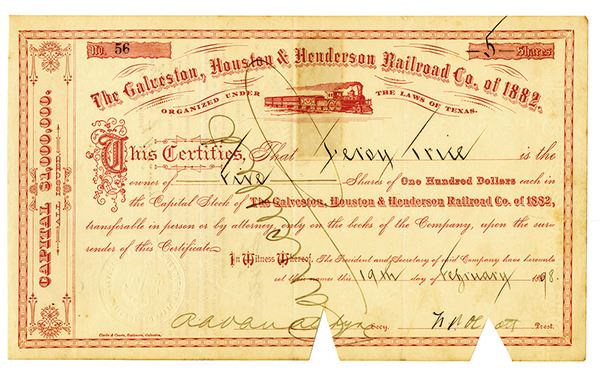 No. 56
5 Shares
The Galveston, Houston & Henderson Railroad Co. of 1882.
ORGANIZED UNDER THE LAWS OF TEXAS.
CAPITAL $1,000,000.
ALL ISSUED.
This Certifies, That Leroy Trice is the
owner of Five Shares of One Hundred Dollars each in
the Capital Stock of The Galveston, Houston & Henderson Railroad Co. of 1882,
transferable in person or by attorney only on the books of the Company, upon the sur-
render of this Certificate.
In Witness Whereof, The President and Secretary of said Company have hereunto
set their names this 19th day of February 1898.
Secy.
Prest.
Clarke & Courts, Stationers, Galveston.